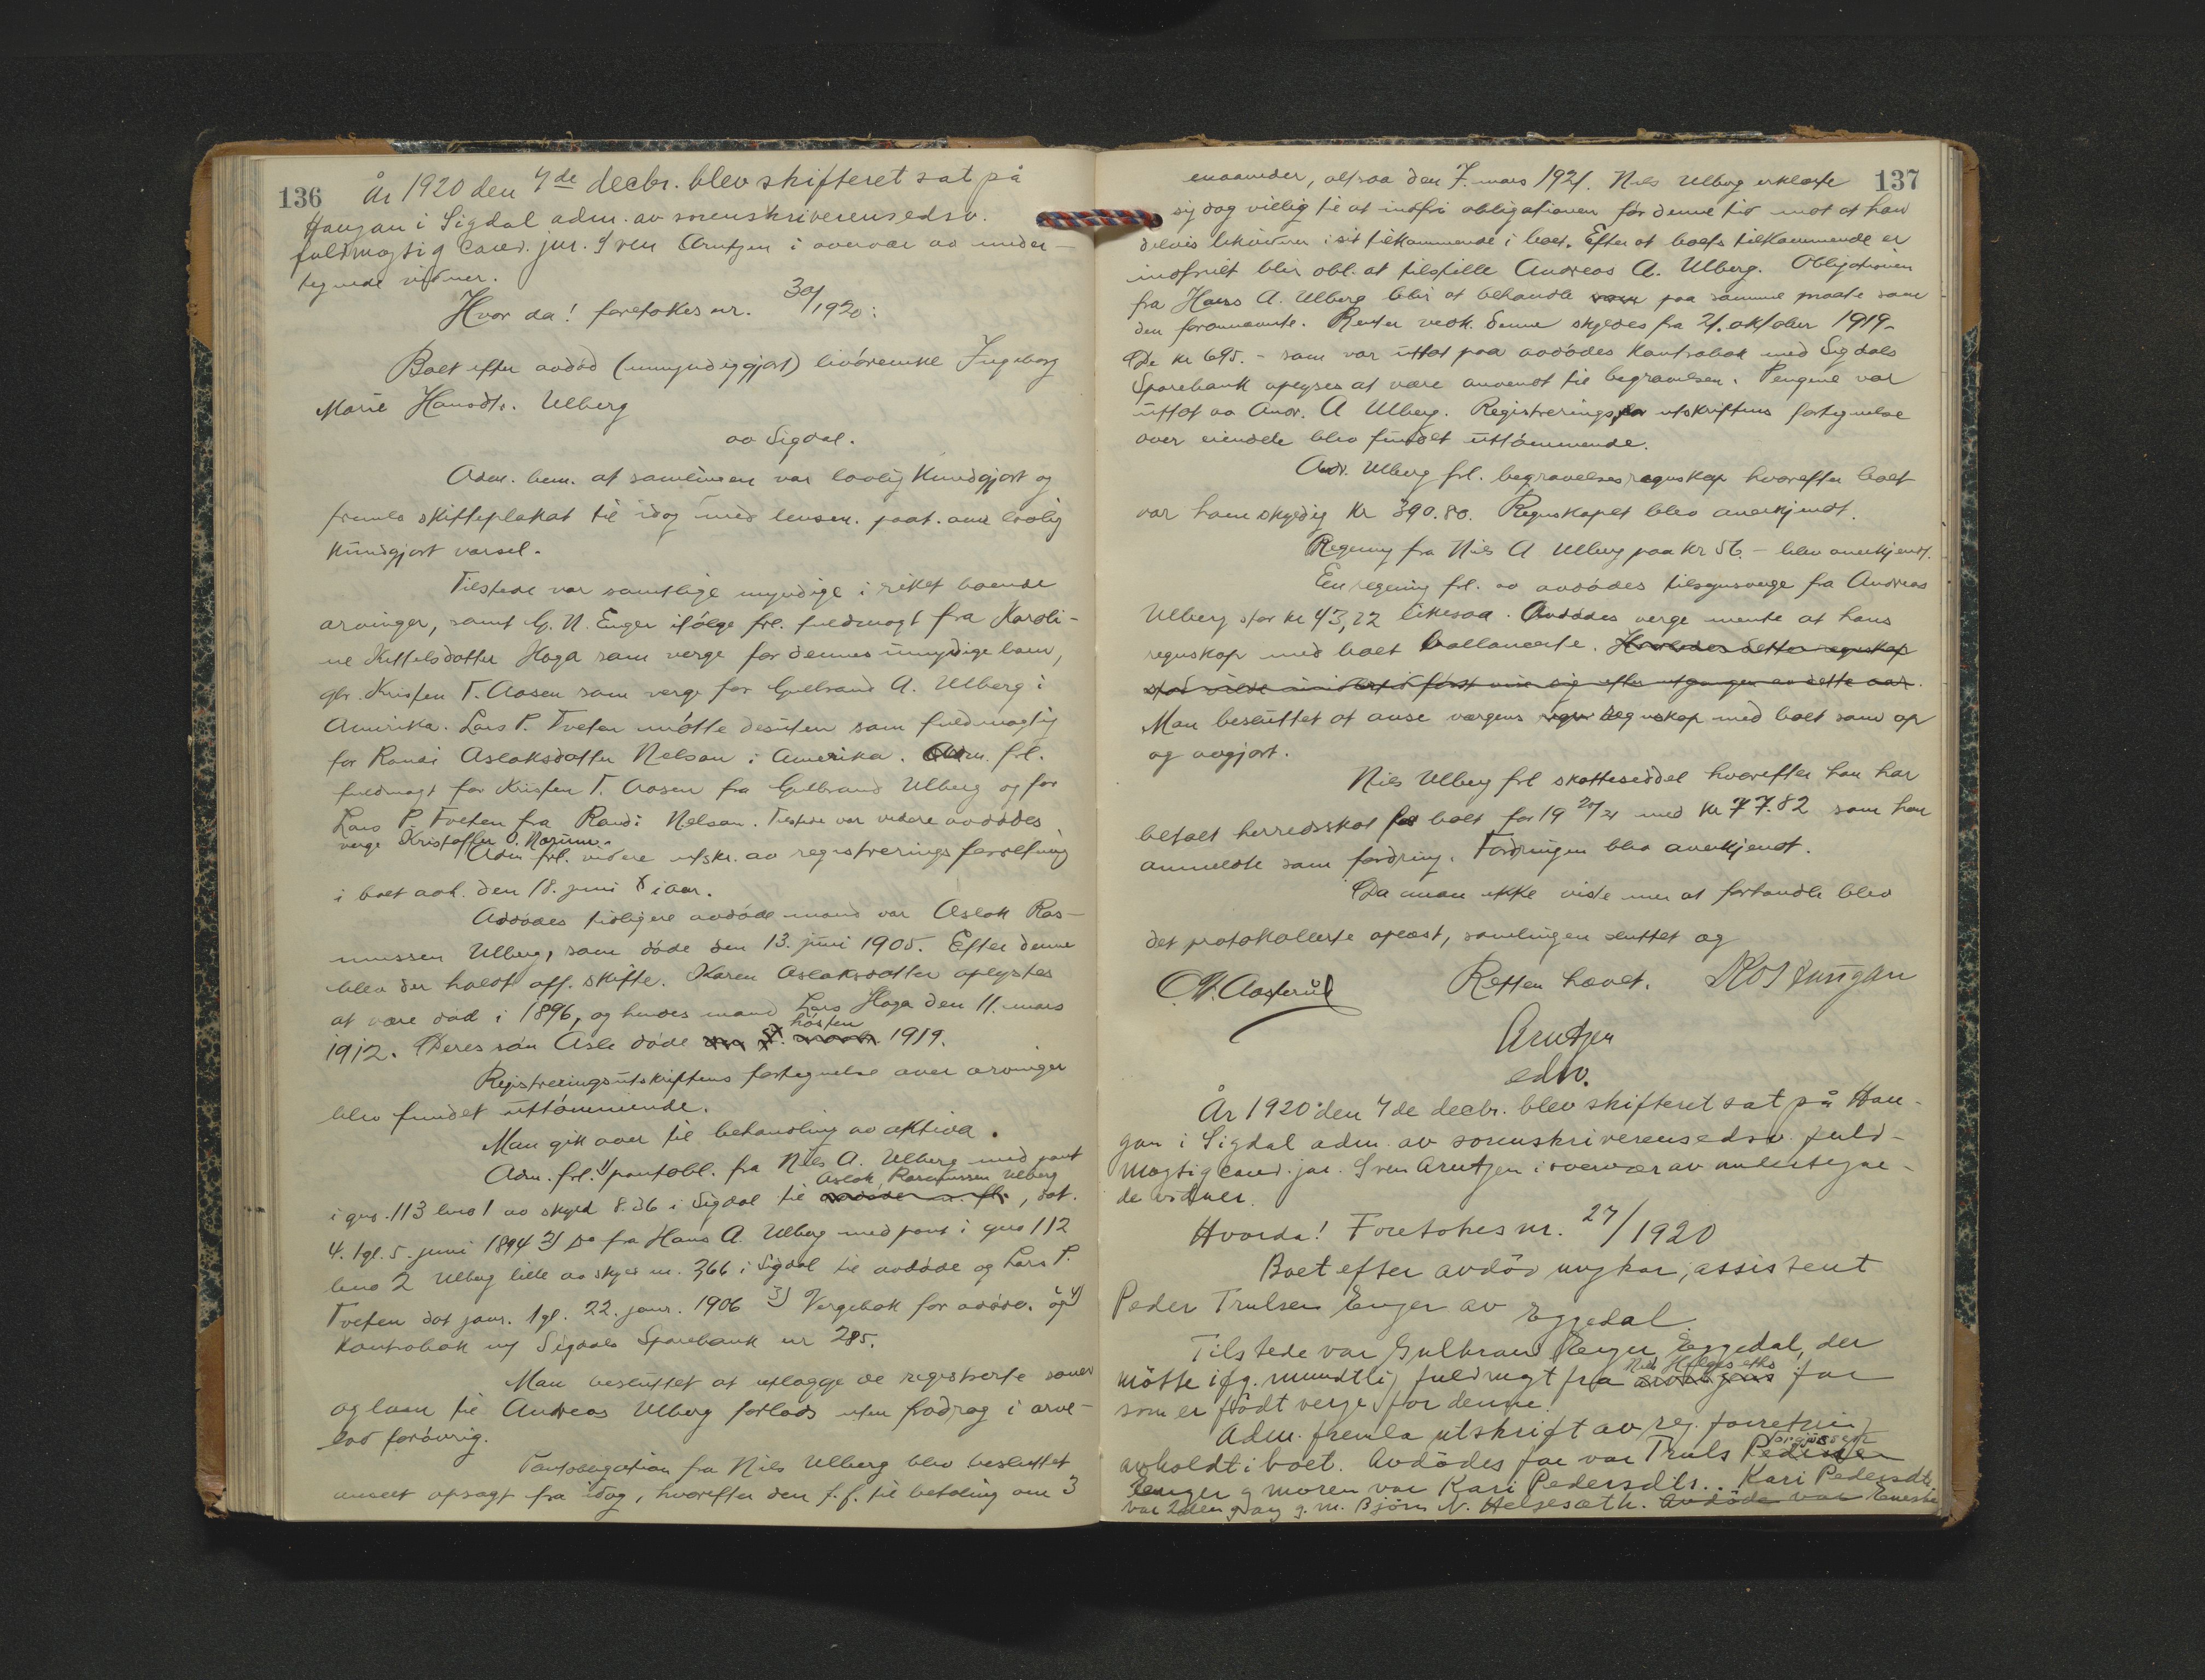 136
År 1920 den 7de decbr. blev skifteret sat på
Haugan i Sigdal adm. av sorenskriverens edsv.
fuldmægtig cand. jur. Sven Arntzen i overvær av under-
tegnede vidner.
Hvor da! foretokes nr. 30/1920:
Boet efter avdöd (umyndiggjort) livörenke Ingeborg
Marie Hansdtr. Ulberg
av Sigdal.
Adm. bem. at samlingen var lovlig kundgjort og
fremla skifteplakat til idag med lensm. paat. om lovlig
kundgjort varsel.
Tilstede var samtlige myndige i riket boende
arvinger, samt G. N. Enger ifölge frl. fuldmagt fra Karoli-
ne Kittelsdatter Haga som verge for dennes umyndige barn,
gbr. Kristen T. Aasen som verge for Gulbrand A. Ulberg i
Amerika. Lars P. Tveten mötte desuten som fuldmægtig
for Randi Aslaksdatter Nelson i Amerika. Adm. frl.
fuldmagt for Kristen T. Aasen fra Gulbrand Ulberg og for
Lars P. Tveten fra Randi Nelson. Tilstede var videre avdödes
verge Kristoffer O. Narum.
Adm frl. videre utskr. av registreringsforretning
i boet avh. den 18. juni i aar.
Avdödes tidligere avdöde mand var Aslak Ras-
mussen Ulberg, som döde den 13. juni 1905. Efter denne
blev der holdt off. skifte. Karen Aslaksdatter oplystes
at være död i 1896, og hendes mand Lars Haga den 11. mars
1912. Deres sön Asle döde hösten 1919.
Registreringsutskriftens fortegnelse over arvinger
blev fundet uttömmende.
Man gik over til behandling av aktiva.
Adm. frl. 1) pantobl. fra Nils A. Ulberg med pant
i gno. 113 bno 1 av skyld 8.36 i Sigdal til Aslak Rasmussen Ulberg, dat.
4. tgl. 5. juni 1894 2) Do fra Hans A. Ulberg med pant i gno 112
bno 2 Ulberg lille av skyld m. 3,66 i Sigdal til avdöde og Lars P.
Tveten dat janr. tgl. 22. janr. 1906 3) Vergebok for avdöde. og 4)
Kontrabok m/ Sigdals Sparebank nr 285.
Man besluttet at utlægge de registrerte sauer
og lam til Andreas Ulberg forlods uten fradrag i arve-
lod forövrig.
Pantobligation fra Nils Ulberg blev besluttet
anseet opsagt fra idag, hvorefter den f. f. til betaling om 3
137
maaneder, altsaa den 7. mars 1921. Nils Ulberg erklærte
sig dog villig til at indfri obligationen för denne tid mot at han
delvis likvideres i sit tilkommende i boet. Efter at boets tilkommende er
indfriet blir obl. at tilstille Andreas A. Ulberg. Obligationen
fra Hans A. Ulberg blir at behandle paa samme maate som
den forannævnte. Renter vedk. denne skyldes fra 21. oktober 1919.
De kr 695.- som var uttat paa avdödes kontrabok med Sigdals
Sparebank oplyses at være anvendt til begravelsen. Pengene var
uttat av Andr. A Ulberg. Registreringsutskriftens fortegnelse
over eiendele blev fundet uttömmende.
Andr. Ulberg frl. begravelsesregnskap hvorefter boet
var ham skyldig kr 390.80. Regnskapet blev anerkjendt.
Regning fra Nils A Ulberg paa kr 56.- blev anerkjendt.
En regning frl. av avdödes tilsynsverge fra Andreas
Ulberg stor kr 43,22 likesaa. Avdödes verge mente at hans
regnskap med boet ballancerte. Hvorledes dette regnskap
Man besluttet at anse vergens regnskap med boet som op
og avgjort.
Nils Ulberg frl skatteseddel hvorefter han har
betalt herredsskat for boet for 19 20/21 med kr 77.82 som han
anmeldte som fordring. Fordringen blev anerkjendt.
Da man ikke viste mer at forhandle blev
det protokollerte oplæst, samlingen sluttet og
Retten hævet.
N. Aasterud
Arntzen
edsv.
År 1920 den 7de decbr. blev skifteret sat på Hau-
gan i Sigdal adm. av sorenskriverens edsv. fuld-
mægtig cand. jur. Sven Arntzen i overvær av undertegne-
de vidner.
Hvorda! Foretokes nr. 27/1920
Boet efter avdöd ungkar, assistent
Peder Trulsen Enger av Eggedal.
Tilstede var Gulbrand Enger Eggedal, der
mötte ifg. mundtlig fuldmagt fra Nils Helgeseths far
som er födt verge for denne.
Adm. fremla utskrift av reg. forretning
avholdt i boet. Avdödes far var Truls Torgjussen
Enger g moren var Kari Pedersdtr.. Kari Pedersdtr.
var 2den gang g. m. Björn N. Helgesæth. Avdöde var Eneste